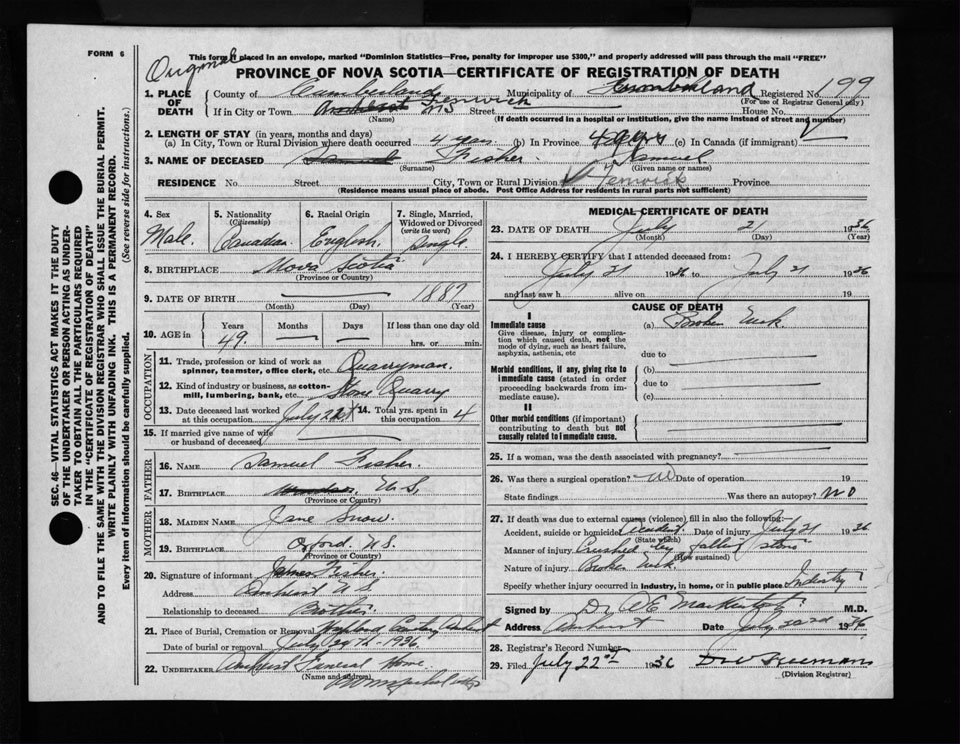 FORM 6
This form if placed in an envelope, marked "Dominion Statistics—Free, penalty for improper use $300," and properly addressed will pass through the mail "FREE"
Original
PROVINCE OF NOVA SCOTIA—CERTIFICATE OF REGISTRATION OF DEATH
1. PLACE OF DEATH
County of Cumberland Municipality of Cumberland Registered No. 199
(For use of Registrar General only)
If in City or Town Amherst Fenwick NS Street House No.
(Name) (If death occurred in a hospital or institution, give the name instead of street and number)
2. LENGTH OF STAY (in years, months and days)
(a) In City, Town or Rural Division where death occurred 4 years (b) In Province 49 yrs (c) In Canada (if immigrant)
3. NAME OF DECEASED Samuel Fisher. Samuel
(Surname) (Given name or names)
RESIDENCE No Street City, Town or Rural Division Fenwick Province
(Residence means usual place of abode. Post Office Address for residents in rural parts not sufficient)
4. Sex
Male.
5. Nationality (Citizenship)
Canadian.
6. Racial Origin
English.
7. Single, Married, Widowed or Divorced (write the word)
Single
8. BIRTHPLACE Nova Scotia
(Province or Country)
9. DATE OF BIRTH — 1887
(Month) (Day) (Year)
10. AGE in
Years Months Days If less than one day old
49. — — hrs. or min.
OCCUPATION
11. Trade, profession or kind of work as spinner, teamster, office clerk, etc. Quarryman.
12. Kind of industry or business, as cotton-mill, lumbering, bank, etc. Stone Quarry
13. Date deceased last worked at this occupation July 21st
14. Total yrs. spent in this occupation 4
15. If married give name of wife or husband of deceased —
FATHER
16. NAME Samuel Fisher.
17. BIRTHPLACE N.S.
(Province or Country)
MOTHER
18. MAIDEN NAME Jane Snow.
19. BIRTHPLACE Oxford N.S.
(Province or Country)
20. Signature of informant James Fisher.
Address Amherst N.S
Relationship to deceased Brother.
21. Place of Burial, Cremation or Removal Highland Cemetery Amherst
Date of burial or removal July 1936
22. UNDERTAKER Amherst Funeral Home.
(Name and address)
MEDICAL CERTIFICATE OF DEATH
23. DATE OF DEATH July 21 1936
(Month) (Day) (Year)
24. I HEREBY CERTIFY that I attended deceased from:
July 21 1936 to July 21 1936
and last saw h alive on 19
CAUSE OF DEATH
I
Immediate cause (a) Broken Neck
Give disease, injury or complication which caused death, not the mode of dying, such as heart failure, asphyxia, asthenia, etc
due to
Morbid conditions, if any, giving rise to immediate cause (stated in order proceeding backwards from immediate cause).
(b)
due to
(c)
II
Other morbid conditions (if important) contributing to death but not causally related to immediate cause.
25. If a woman, was the death associated with pregnancy?
26. Was there a surgical operation? No Date of operation 19
State findings Was there an autopsy? NO
27. If death was due to external causes (violence) fill in also the following:
Accident, suicide or homicide Accident. Date of injury July 21 1936
(State which)
Manner of injury Crushed by falling stone
(How sustained)
Nature of injury Broken neck.
Specify whether injury occurred in industry, in home, or in public place Industry
Signed by Dr M.D.
Address Amherst Date July 22nd 1936
28. Registrar's Record Number
29. Filed July 22nd 1936
(Division Registrar)
SEC. 46—VITAL STATISTICS ACT MAKES IT THE DUTY
OF THE UNDERTAKER OR PERSON ACTING AS UNDER-
TAKER TO OBTAIN ALL THE PARTICULARS REQUIRED
IN THE "CERTIFICATE OF REGISTRATION OF DEATH"
AND TO FILE THE SAME WITH THE DIVISION REGISTRAR WHO SHALL ISSUE THE BURIAL PERMIT.
WRITE PLAINLY WITH UNFADING INK. THIS IS A PERMANENT RECORD.
Every item of information should be carefully supplied. (See reverse side for instructions.)